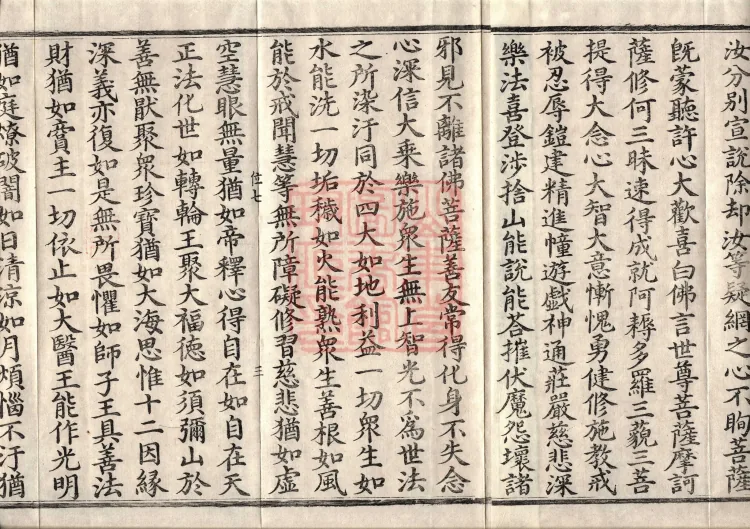 汝分別宣說除却汝等疑網之心不眴菩薩
旣蒙聽許心大歡喜白佛言世尊菩薩摩訶
薩修何三昧速得成就阿耨多羅三藐三菩
提得大念心大智大意慚愧勇健修施教戒
被忍辱鎧建精進幢遊戲神通莊嚴慈悲深
樂法喜登涉捨山能說能荅摧伏魔怨壞諸
邪見不離諸佛菩薩善友常得化身不失念
心深信大乘樂施衆生無上智光不爲世法
之所染汙同於四大如地利益一切衆生如
水能洗一切垢穢如火能熟衆生善根如風
能於戒聞慧等無所障礙修習慈悲猶如虛
位七 三
空慧眼無量猶如帝釋心得自在如自在天
正法化世如轉輪王聚大福德如須彌山於
善無猒聚衆珍寶猶如大海思惟十二因縁
深義亦復如是無所畏懼如師子王具善法
財猶如賣主一切依止如大醫王能作光明
猶如庭燎破闇如日清涼如月煩惱不汙猶